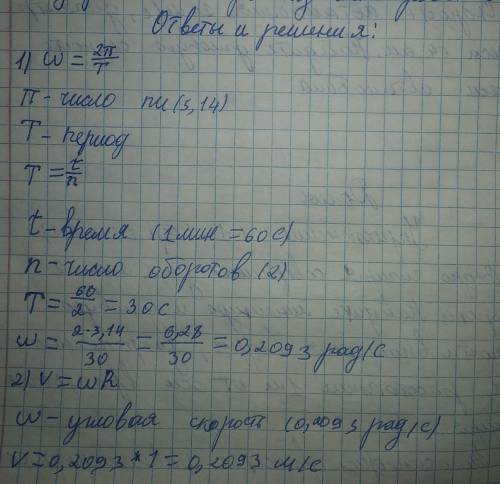 Ответы и решения:
1) ω = 2π/T
π - число пи (3,14)
T - период
T = t/n
t - время (1 мин = 60 с)
n - число оборотов (2)
T = 60/2 = 30 с
ω = 2·3,14/30 = 6,28/30 = 0,2093 рад/с
2) v = ωR
ω - угловая скорость (0,2093 рад/с)
v = 0,2093 * 1 = 0,2093 м/с